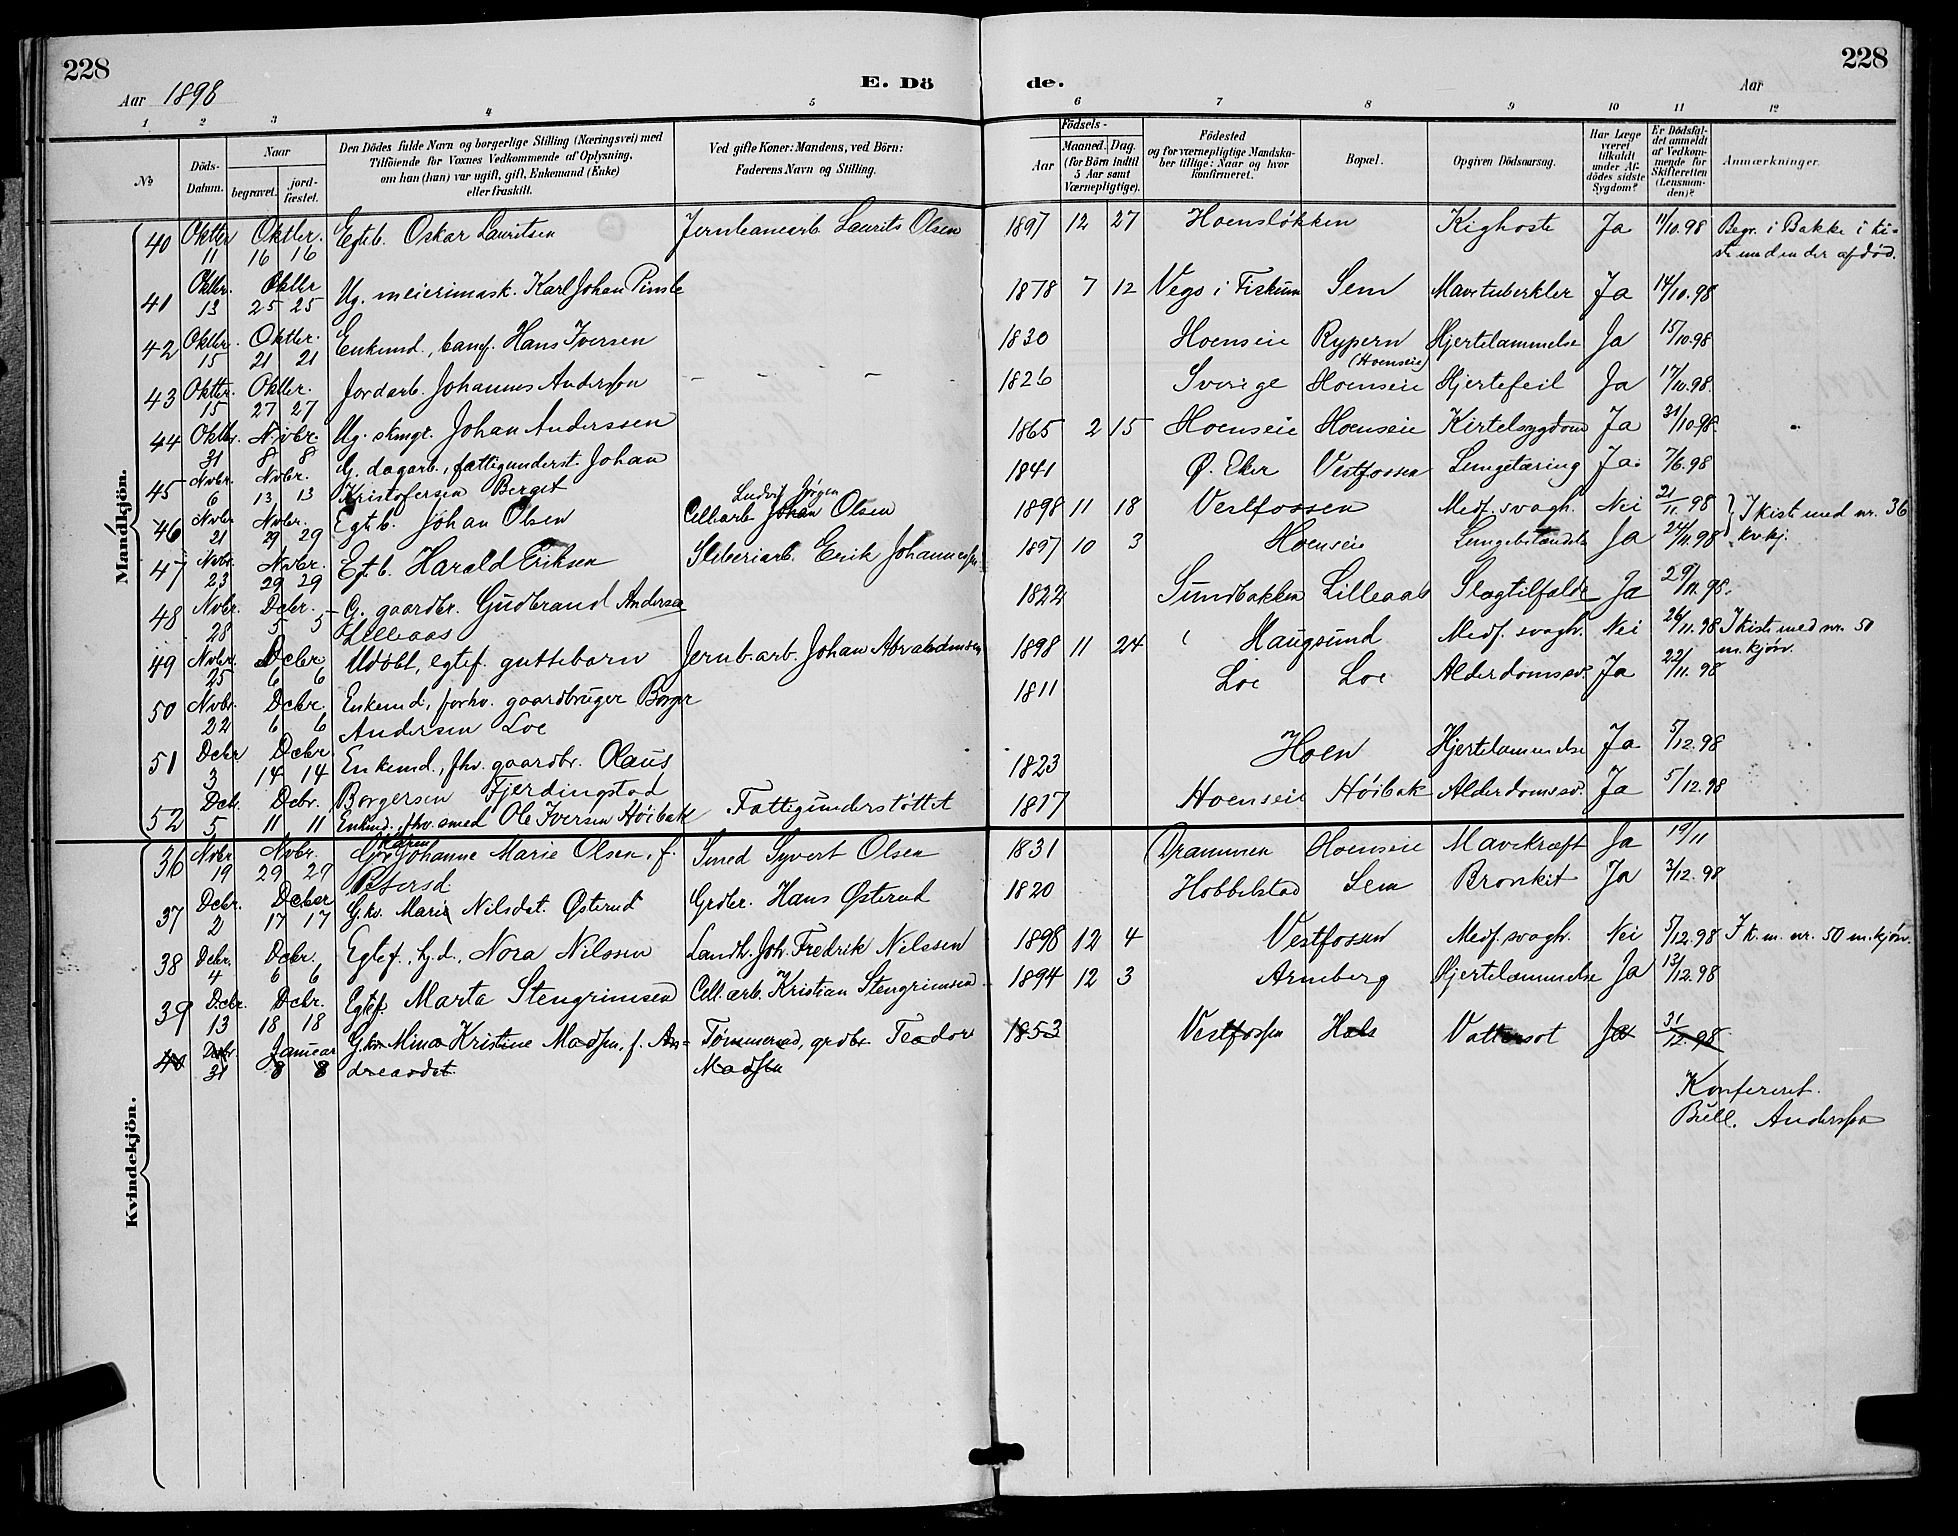 228
Aar 1898
E. Dö de.
Aar
228
1 2 3 4 5 6 7 8 9 10 11 12
№
Döds-Datum.
Naar
begravet. jord-fæstet.
Den Dödes fulde Navn og borgerlige Stilling (Næringsvei) med
Tilföiende for Voxnes Vedkommende af Oplysning,
om han (hun) var ugift, gift, Enkemand (Enke)
eller fraskilt.
Ved gifte Koner: Mandens, ved Börn:
Faderens Navn og Stilling.
Födsels-
Aar
Maaned. Dag.
(for Börn indtil
5 Aar samt
Værnepligtige).
Födested
og for værnepligtige Mandska-
ber tillige: Naar og hvor
konfirmeret.
Bopæl.
Opgiven Dödsaarsag.
Har Læge
været
tilkaldt
under Af-
dödes sidste
Sygdom?
Er Dödsfal-
det anmeldt
af Vedkom-
mende for
Skifteretten
(Lensman-
den)?
Anmærkninger.
Mandkjön.
40 Oktbr 11 Oktbr. 16 16 Egteb. Oskar Lauritsen Jernbanearb. Laurits Olsen 1897 12 27 Hoensløkken Kighoste Ja 11/10.98 Begr. i Bakke i ki-
ste med en der afdød.
41 Oktbr. 13 Oktbr 25 25 Ug. meierimask. Karl Johan Pimsle 1878 7 12 Vego i Fiskum Sem Mavetuberkler Ja 14/10.98
42 Oktbr. 15 Oktbr. 21 21 Enkemd., Hans Iversen 1830 Hoenseie Rypern (Hoenseie) Hjertelammelse Ja 15/10.98
43 Oktbr. 15 Oktbr. 27 27 Jordarb. Johannes Andersson – – – – 1826 Sverige Hoenseie Hjertefeil Ja 17/10.98.
44 Oktbr. 31 Novbr. 8 8 Ug. Johan Anderssen 1865 2 15 Hoenseie Hoenseie Kirtelsygdom Ja 31/10.98.
45 Novbr. 6 Novbr. 13 13 G. dagarb., fattigunderst. Johan
Kristofersen Berget 1841 Ø. Eker Vestfossen Lungetæring Ja. 7/6.98
46 Novbr 21 Novbr. 29 29 Egteb. Johan Olsen Cell.arb. Johan Ludvig Jørgen Olsen 1898 11 18 Vestfossen Medf. svagh. Nei 21/11.98 } I kiste med nr. 36
kvkj.
47 Novbr. 23 Novbr. 29 29 Egt.b. Harald Eriksen Sliberiarb. Erik Johannessen 1897 10 3 Hoenseie Lungebetændels Ja 24/11.98
48 Novbr. 28 Dcbr. 5 5 G. gaardbr. Gudbrand Andersen
Lilleaas 1822 Sundbakken Lilleaas Slagtilfælde Ja 29/11.98.
49 Novbr. 25 Dcbr 6 6 Udøbt, egtef. guttebarn Jernb.arb. Johan Abrahamsen 1898 11 24 Haugsund Medf. svagh. Nei 26/11.98 I kiste med nr. 50
m.kjøn.
50 Novbr. 22 Dcbr. 6 6 Enkemd., forhv. gaardbruger Borger
Andersen Loe 1811 Loe Loe Alderdomssv. Ja 22/11.98
51 Dcbr 3 Dcbr. 14 14 Enkemd., fhv. gaardbr. Olaus
Borgersen Fjerdingstad 1823 Hoen Hjertelammelse Ja 5/12.98
52 Dcb. 5 Dcbr. 11 11 Enkmd. fhv. smed Ole Iversen Høibak Fattigunderstøttet 1817 Hoenseie Høibak Alderdomssv. Ja 5/12.98
Kvindekjön.
36 Novbr 19 Novbr. 29 29 Gkv. Karen Johanne Marie Olsen, f.
Petersd Smed Syvert Olsen 1831 Drammen Hoenseie Mavekræft Ja 19/11
37 Dcbr. 2 Dcber 17 17 G.kv. Marie Nilsdat. Østerud Grdbr. Hans Østerud 1820 Hobbelstad Sem Bronkit Ja 3/12.98
38 Dcbr. 4 Dcbr. 6 6 Egtef. hj.d. Nora Nilssen Landh. Joh. Fredrik Nilssen 1898 12 4 Vestfossen Medf. svagh. Nei 5/12.98 I k. m. nr. 50 m.kjøn.
39 Dcbr 13 Dcbr. 18 18 Egtef. Marta Stengrimsen Cell.arb. Kristian Stengrimsen 1894 12 3 Arneberg Hjertelammelse Ja 13/12.98
40 Dcbr. 31 Januar 8 8 G.kv. Mina Kristine Madsen, f. An-
dreasdat. Tømmermd, grdbr Teodor
Madsen 1853 Vestfossen Hals Vattersot Ja 31/12.98
Konfereret.
Bull. Anderssen